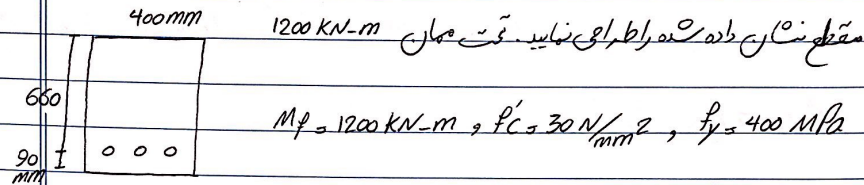 400mm
مقطع نشان داده شده را طراحی نمایید. تحت ممان 1200 KN-m
660
Mf = 1200 KN-m , f'c = 30 N/mm2 , fy = 400 MPa
90
mm